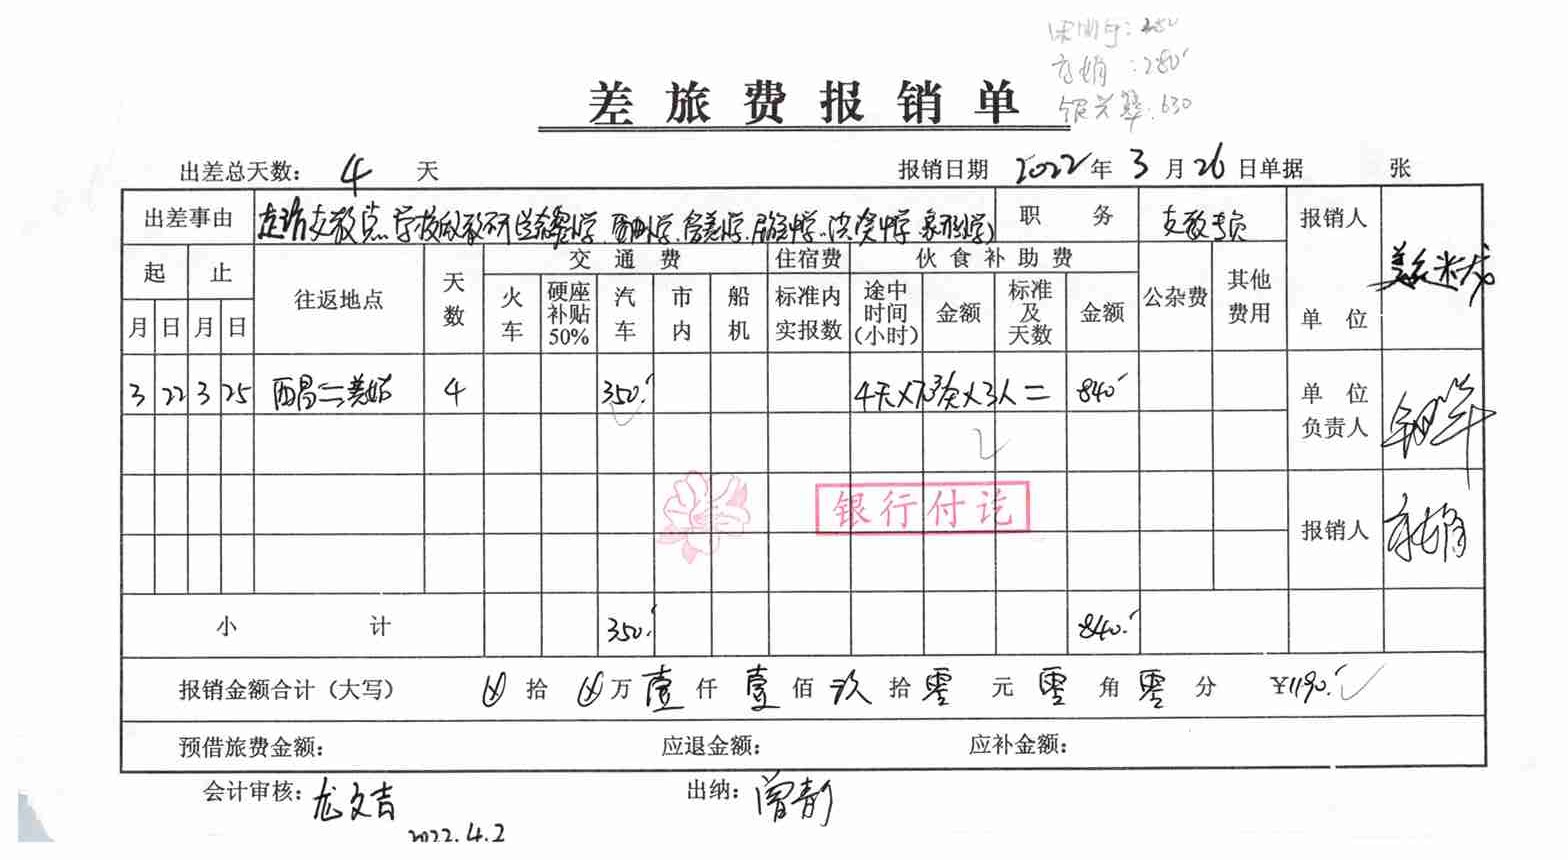 :280
:280
.630
差旅费报销单
出差总天数: 4 天 报销日期 2022年3月26日单据 张
出差事由 走访支教点学校 职务 支教专员 报销人
起 止 往返地点 天数 交通费 住宿费 伙食补助费 公杂费 其他费用
月 日 月 日 火车 硬座补贴50% 汽车 市内 船机 标准内实报数 途中时间(小时) 金额 标准及天数 金额 单位
3 22 3 25 西昌 美姑 4 350. 4天×70元/天×3人= 840 单位负责人
银行付讫
报销人
小计 350. 840.
报销金额合计(大写) 拾 万壹仟壹佰玖拾零元零角零分 ¥1190.
预借旅费金额: 应退金额: 应补金额:
会计审核: 龙文吉 出纳: 曾静
2022.4.2